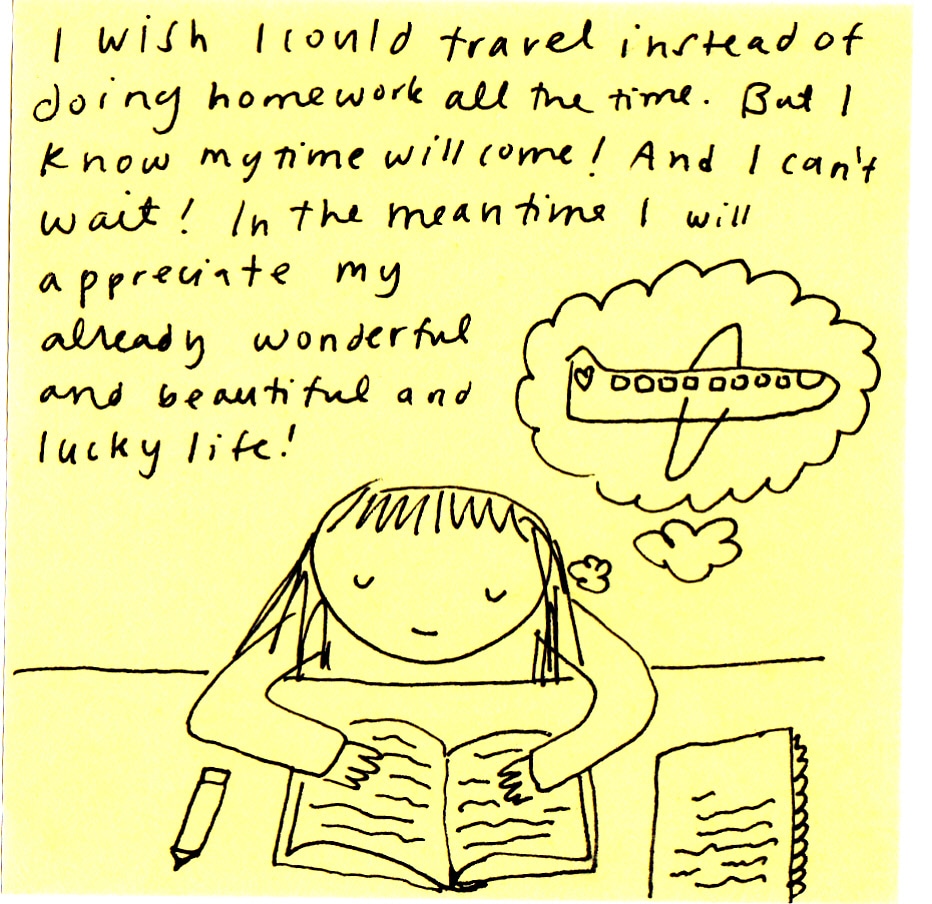 I wish I could travel instead of
doing homework all the time. But I
know my time will come! And I can't
wait! In the meantime I will
appreciate my
already wonderful
and beautiful and
lucky life!